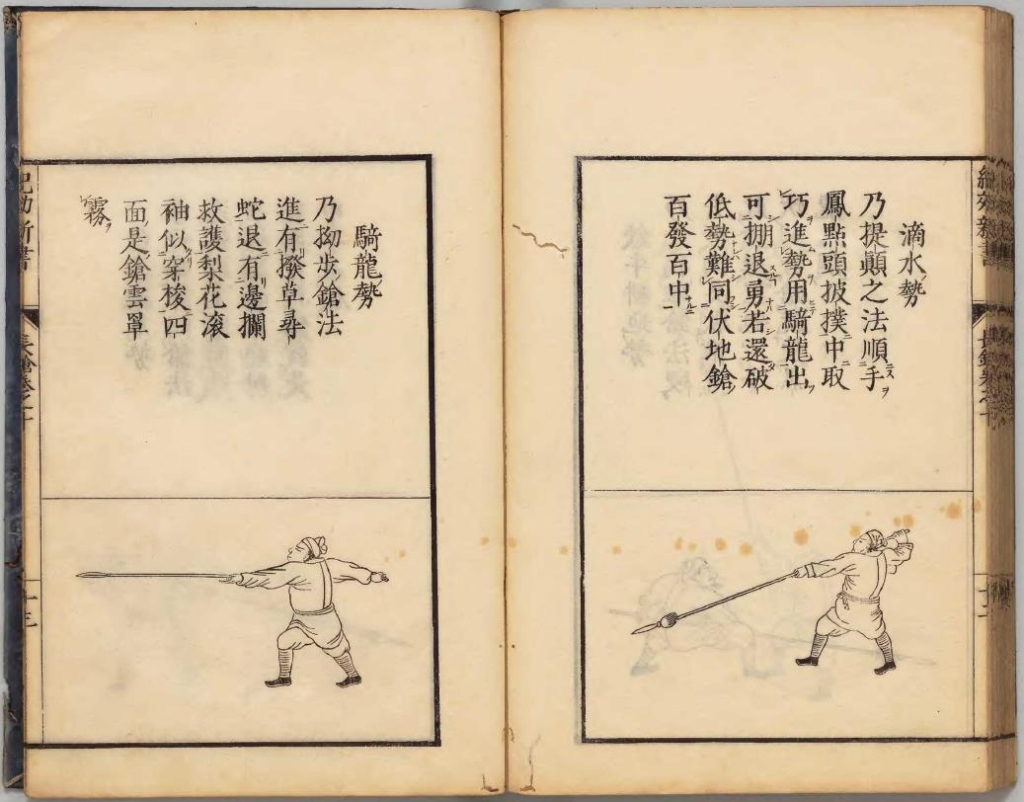 紀效新書
長鎗卷之十
十二
滴水勢
乃提顚之法順手
鳳點頭披撲中取
巧進勢用騎龍出
可掤退勇若還破
低勢難同伏地鎗
百發百中
騎龍勢
乃拗歩鎗法
進有撥草尋
蛇退有邊攔
救護梨花滚
袖似穿梭四
面是鎗雲罩
霧
紀効新書
長鎗卷之十
十三